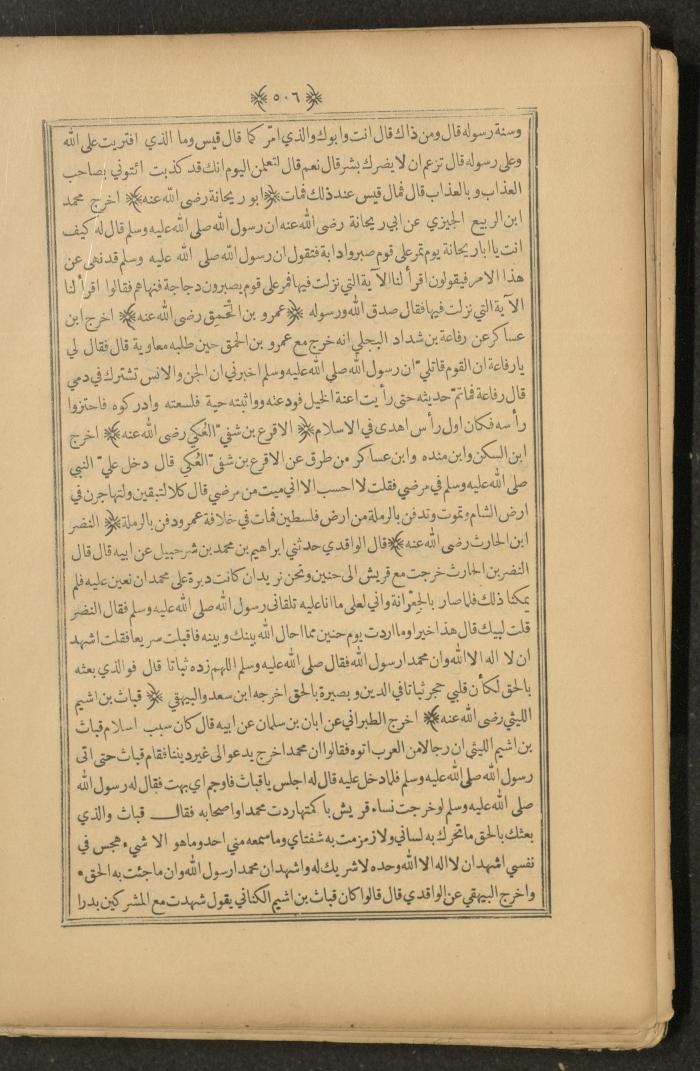 ﴿ ٥٠٦ ﴾
وسنة رسوله قال ومن ذاك قال انت وابوك والذي امّر كما قال قيس وما الذي افتريت على الله
وعلى رسوله قال تزعم ان لا يضرك بشر قال نعم قال لتعلمن اليوم انك قد كذبت ائتوني بصاحب
العذاب وبالعذاب قال فمال قيس عند ذلك فمات ﴿ ابو ريحانة رضى الله عنه ﴾ اخرج محمد
ابن الربيع الجيزي عن ابي ريحانة رضى الله عنه ان رسول الله صلى الله عليه وسلم قال له كيف
انت يا ابا ريحانة يوم تمر على قوم صبروا دابة فتقول ان رسول الله صلى الله عليه وسلم قد نهى عن
هذا الامر فيقولون اقرأ لنا الآية التي نزلت فيها فمر على قوم يصبرون دجاجة فنهاهم فقالوا اقرأ لنا
الآية التي نزلت فيها فقال صدق الله ورسوله ﴿ عمرو بن الحَمِق رضى الله عنه ﴾ اخرج ابن
عساكر عن رفاعة بن شداد البجلي انه خرج مع عمرو بن الحمق حين طلبه معاوية قال فقال لي
يا رفاعة ان القوم قاتليّ ان رسول الله صلى الله عليه وسلم اخبرني ان الجن والانس تشترك في دمي
قال رفاعة فما تمّ حديثه حتى رأيت اعنة الخيل فودعته وواثبته حية فلسعته وادركوه فاحتزوا
رأسه فكان اول رأس اهدى في الاسلام ﴿ الاقرع بن شفي العُكي رضى الله عنه ﴾ اخرج
ابن السكن وابن منده وابن عساكر من طرق عن الاقرع بن شفى العُكي قال دخل عليّ النبي
صلى الله عليه وسلم في مرضي فقلت لا احسب الا اني ميت من مرضي قال كلا لتبقين ولتهاجرن في
ارض الشام وتموت وتدفن بالرملة من ارض فلسطين فمات في خلافة عمر ودفن بالرملة ﴿ النضر
ابن الحارث رضى الله عنه ﴾ قال الواقدي حدثني ابراهيم بن محمد بن شرحبيل عن ابيه قال قال
النضر بن الحارث خرجت مع قريش الى حنين ونحن نريد ان كانت دبرة على محمد ان نعين عليه فلم
يمكنا ذلك فلما صار بالجعرّانة واني لعلى ما انا عليه تلقانى رسول الله صلى الله عليه وسلم فقال النضر
قلت لبيك قال هذا خير اوما اردت يوم حنين مما احال الله بينك وبينه فاقبلت سريعا فقلت اشهد
ان لا اله الا الله وان محمدا رسول الله فقال صلى الله عليه وسلم اللهم زده ثباتا قال فوالذي بعثه
بالحق لكأن قلبي حجر ثباتا في الدين وبصيرة بالحق اخرجه ابن سعد والبيهقي ﴿ قباث بن اشيم
الليثي رضى الله عنه ﴾ اخرج الطبراني عن ابان بن سلمان عن ابيه قال كان سبب اسلام قباث
بن اشيم الليثي ان رجالا من العرب اتوه فقالوا ان محمدا خرج يدعو الى غير ديننا فقام قباث حتى اتى
رسول الله صلى الله عليه وسلم فلما دخل عليه قال له اجلس يا قباث فاوجم اي بهت فقال له رسول الله
صلى الله عليه وسلم لو خرجت نساء قريش باكمتها ردت محمدا واصحابه فقال قباث والذي
بعثك بالحق ما تحرك به لساني ولا زمزمت به شفتاي وما سمعه مني احد وما هو الا شيء هجس في
نفسي اشهد ان لا اله الا الله وحده لا شريك له واشهد ان محمدا رسول الله وان ما جئت به الحق *
واخرج البيهقي عن الواقدي قال قالوا كان قباث بن اشيم الكناني يقول شهدت مع المشركين بدرا